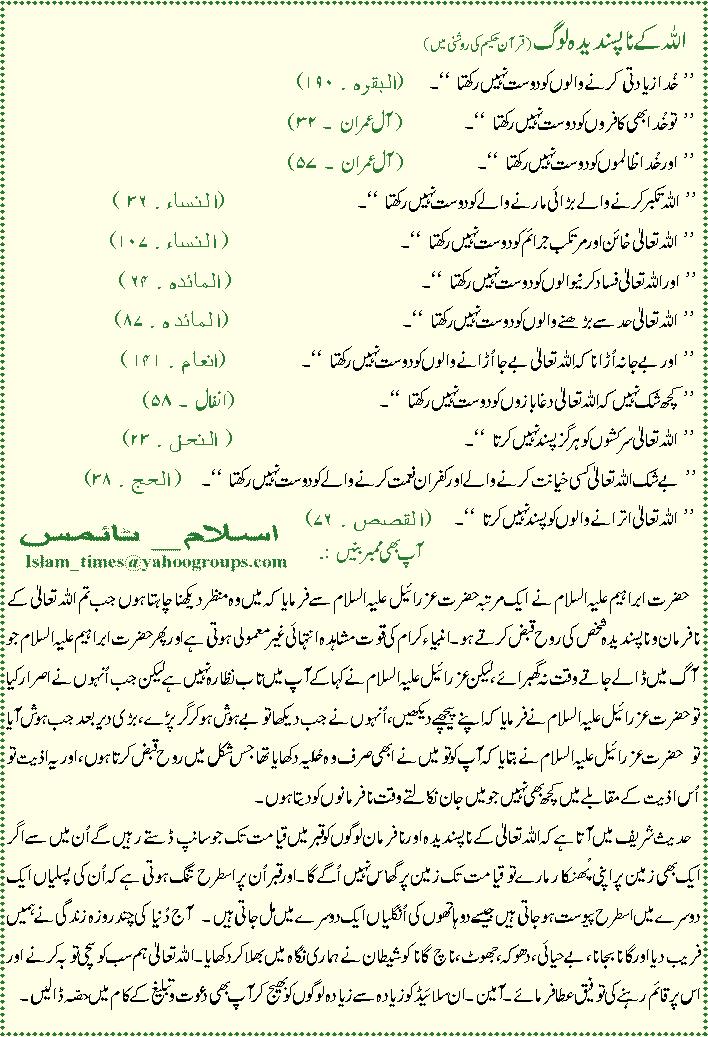 اللہ کے ناپسندیدہ لوگ (قرآن حکیم کی روشنی میں)
’’ خُدا زیادتی کرنے والوں کو دوست نہیں رکھتا ‘‘۔ (البقرہ ۔ ۱۹۰)
’’ تو خُدا بھی کافروں کو دوست نہیں رکھتا ‘‘۔ (آل عمران ۔ ۳۲)
’’ اور خُدا ظالموں کو دوست نہیں رکھتا ‘‘۔ (آل عمران ۔ ۵۷)
’’ اللہ تکبر کرنے والے بڑائی مارنے والے کو دوست نہیں رکھتا ‘‘۔ (النساء ۔ ۳۶)
’’ اللہ تعالیٰ خائن اور مرتکب جرائم کو دوست نہیں رکھتا ‘‘۔ (النساء ۔ ۱۰۷)
’’ اور اللہ تعالیٰ فساد کرنیوالوں کو دوست نہیں رکھتا ‘‘۔ (المائدہ ۔ ۶۴)
’’ اللہ تعالیٰ حد سے بڑھنے والوں کو دوست نہیں رکھتا ‘‘۔ (المائدہ ۔ ۸۷)
’’ اور بے جا نہ اُڑانا کہ اللہ تعالیٰ بے جا اُڑانے والوں کو دوست نہیں رکھتا ‘‘۔ (انعام ۔ ۱۴۱)
’’ کچھ شک نہیں کہ اللہ تعالیٰ دغابازوں کو دوست نہیں رکھتا ‘‘۔ (انفال ۔ ۵۸)
’’ اللہ تعالیٰ سرکشوں کو ہرگز پسند نہیں کرتا ‘‘۔ (النحل ۔ ۲۳)
’’ بے شک اللہ تعالیٰ کسی خیانت کرنے والے اور کفران نعمت کرنے والے کو دوست نہیں رکھتا ‘‘۔ (الحج ۔ ۳۸)
’’ اللہ تعالیٰ اترانے والوں کو پسند نہیں کرتا ‘‘۔ (القصص ۔ ۷۶)
اسلام_ٹائمس
آپ بھی ممبر بنیں :۔
Islam_times@yahoogroups.com
حضرت ابراہیم علیہ السلام نے ایک مرتبہ حضرت عزرائیل علیہ السلام سے فرمایا کہ میں وہ منظر دیکھنا چاہتا ہوں جب تم اللہ تعالیٰ کے
نافرمان و ناپسندیدہ شخص کی روح قبض کرتے ہو۔ انبیاء کرام کی قوت مشاہدہ انتہائی غیر معمولی ہوتی ہے اور پھر حضرت ابراہیم علیہ السلام جو
آگ میں ڈالے جاتے وقت نہ گھبرائے، لیکن عزرائیل علیہ السلام نے کہا کے آپ میں تاب نظارہ نہیں ہے لیکن جب اُنہوں نے اصرار کیا
تو حضرت عزرائیل علیہ السلام نے فرمایا کہ اپنے پیچھے دیکھیں، اُنہوں نے جب دیکھا تو بے ہوش ہو کر گر پڑے، بڑی دیر بعد جب ہوش آیا
تو حضرت عزرائیل علیہ السلام نے بتایا کہ آپ کو تو میں نے ابھی صرف وہ حُلیہ دکھایا تھا جس شکل میں روح قبض کرتا ہوں، اور یہ اذیت تو
اُس اذیت کے مقابلے میں کچھ بھی نہیں جو میں جان نکالتے وقت نافرمانوں کو دیتا ہوں۔
حدیث شریف میں آتا ہے کہ اللہ تعالیٰ کے ناپسندیدہ اور نافرمان لوگوں کو قبر میں قیامت تک جو سانپ ڈستے رہیں گے اُن میں سے اگر
ایک بھی زمین پر اپنی پُھنکار مارے تو قیامت تک زمین پر گھاس نہیں اُگے گا۔ اور قبر اُن پر اسطرح تنگ ہوتی ہے کہ اُن کی پسلیاں ایک
دوسرے میں اسطرح پیوست ہو جاتی ہیں جیسے دو ہاتھوں کی اُنگلیاں ایک دوسرے میں مل جاتی ہیں۔ آج دُنیا کی چند روزہ زندگی نے ہمیں
فریب دیا اور گانا بجانا، بے حیائی، دھوکہ، جھوٹ، ناچ گانا کو شیطان نے ہماری نگاہ میں بھلا کر دکھایا۔ اللہ تعالیٰ ہم سب کو سچی توبہ کرنے اور
اس پر قائم رہنے کی توفیق عطا فرمائے۔ آمین۔ ان سلائیڈ کو زیادہ سے زیادہ لوگوں کو بھیج کر آپ بھی دعوت و تبلیغ کے کام میں حصّہ ڈالیں۔